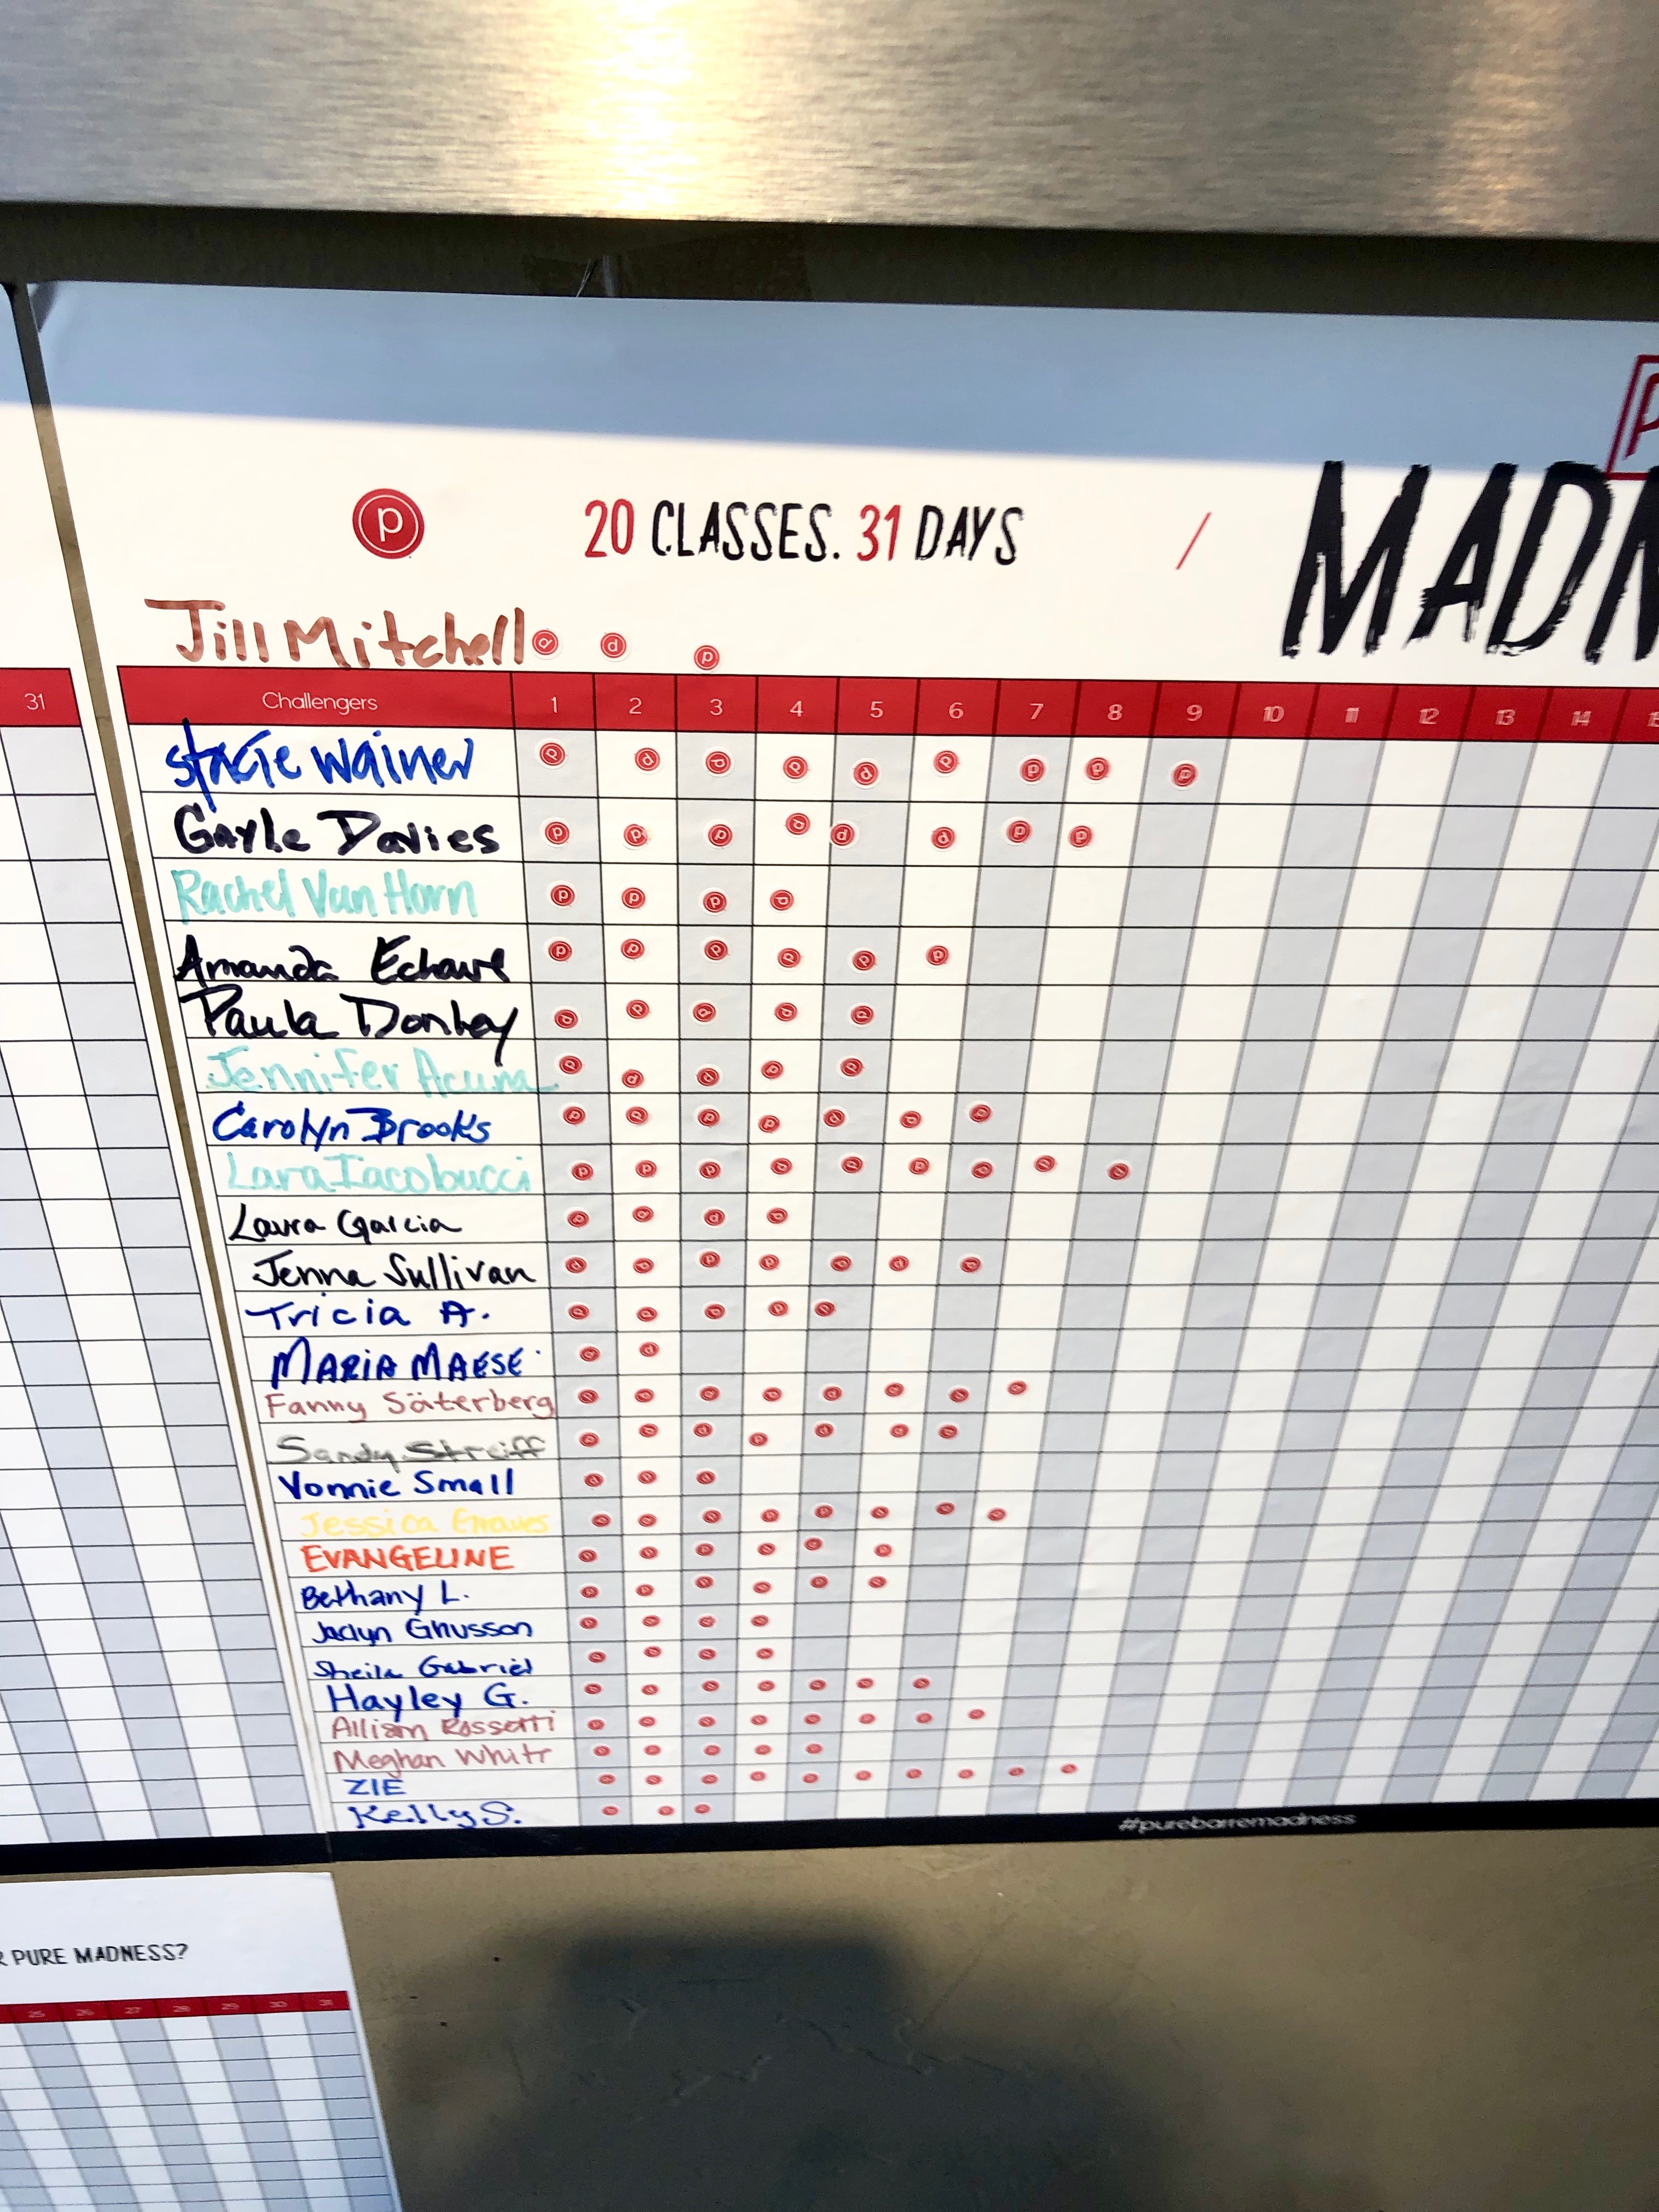 P
20 CLASSES. 31 DAYS / MADN
Jill Mitchell
31
Challengers 1 2 3 4 5 6 7 8 9 10 11 12 13 14
Stacie Wainer
Gayle Davies
Rachel Van Horn
Amanda
Paula Donley
Jennifer Acuna
Carolyn Brooks
Lara Iacobucci
Laura Garcia
Jenna Sullivan
Tricia A.
MARIA MAESE
Fanny Säterberg
Sandy Streiff
Vonnie Small
Jessica Graves
EVANGELINE
Bethany L.
Jaclyn Ghusson
Sheila Gabriel
Hayley G.
Allison Rossetti
Meghan White
ZIE
Kelly S.
#purebarremadness
PURE MADNESS?
25 26 27 28 29 30 31